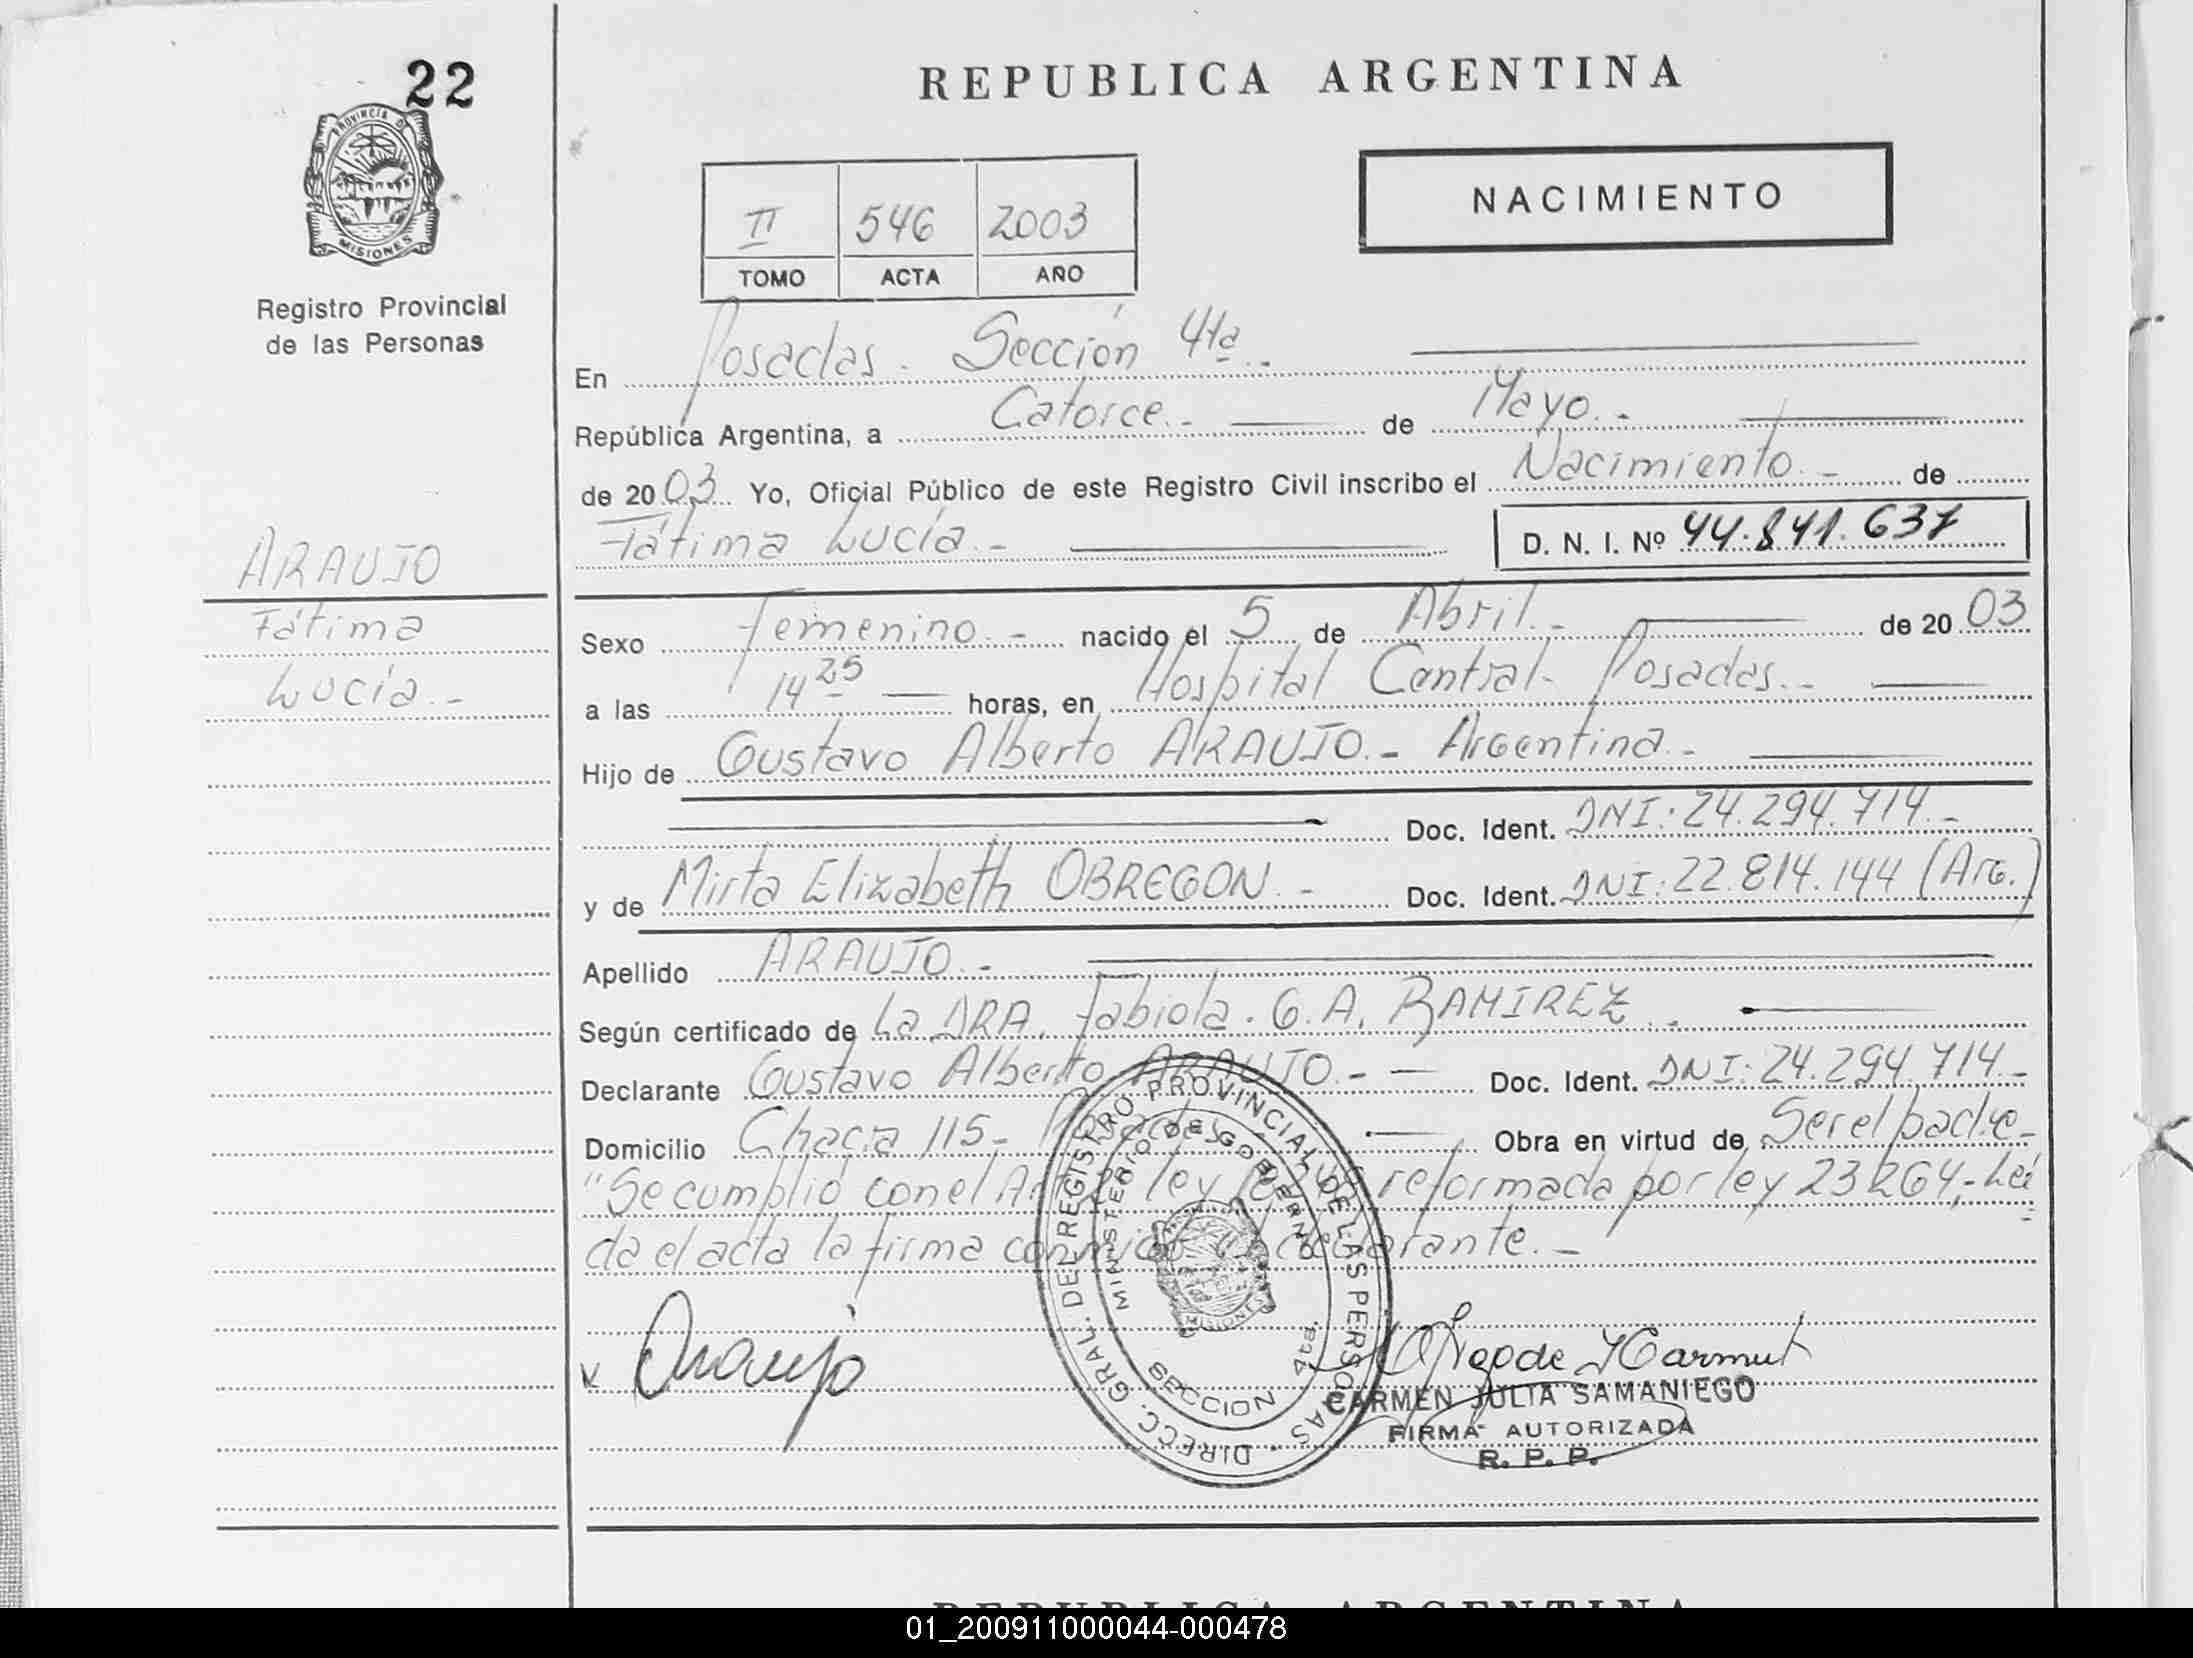 22
REPUBLICA ARGENTINA
PROVINCIA DE
MISIONES
Registro Provincial
de las Personas
NACIMIENTO
II 546 2003
TOMO ACTA AÑO
En Posadas. Sección 4ta.-
República Argentina, a Catorce.- de Mayo.-
de 2003 Yo, Oficial Público de este Registro Civil inscribo el Nacimiento.- de
Fátima Lucía.- D. N. I. Nº 44.841.637
ARAUJO
Fátima
Lucía.-
Sexo femenino.- nacido el 5 de Abril.- de 2003
a las 14 25 horas, en Hospital Central- Posadas.-
Hijo de Gustavo Alberto ARAUJO.- Argentina.-
Doc. Ident. DNI: 24.294.714.-
y de Mirta Elizabeth OBREGON.- Doc. Ident. DNI: 22.814.144 (Arg.)
Apellido ARAUJO.-
Según certificado de La DRA. Fabiola. G. A. RAMIREZ.
Declarante Gustavo Alberto ARAUJO.- Doc. Ident. DNI: 24.294.714.-
Domicilio Chacra 115- Posadas Obra en virtud de Ser el padre-
"Se cumplió con el Art. ley reformada por ley 23264,- Leí
da el acta la firma conmigo el declarante.-
Araujo
DIRECC. GRAL. DEL REGISTRO PROVINCIAL DE LAS PERSONAS
MINISTERIO DE GOBIERNO
MISIONES
SECCION 4ta.
CARMEN JULIA SAMANIEGO
FIRMA AUTORIZADA
R. P. P.
REPUBLICA ARGENTINA
01_200911000044-000478